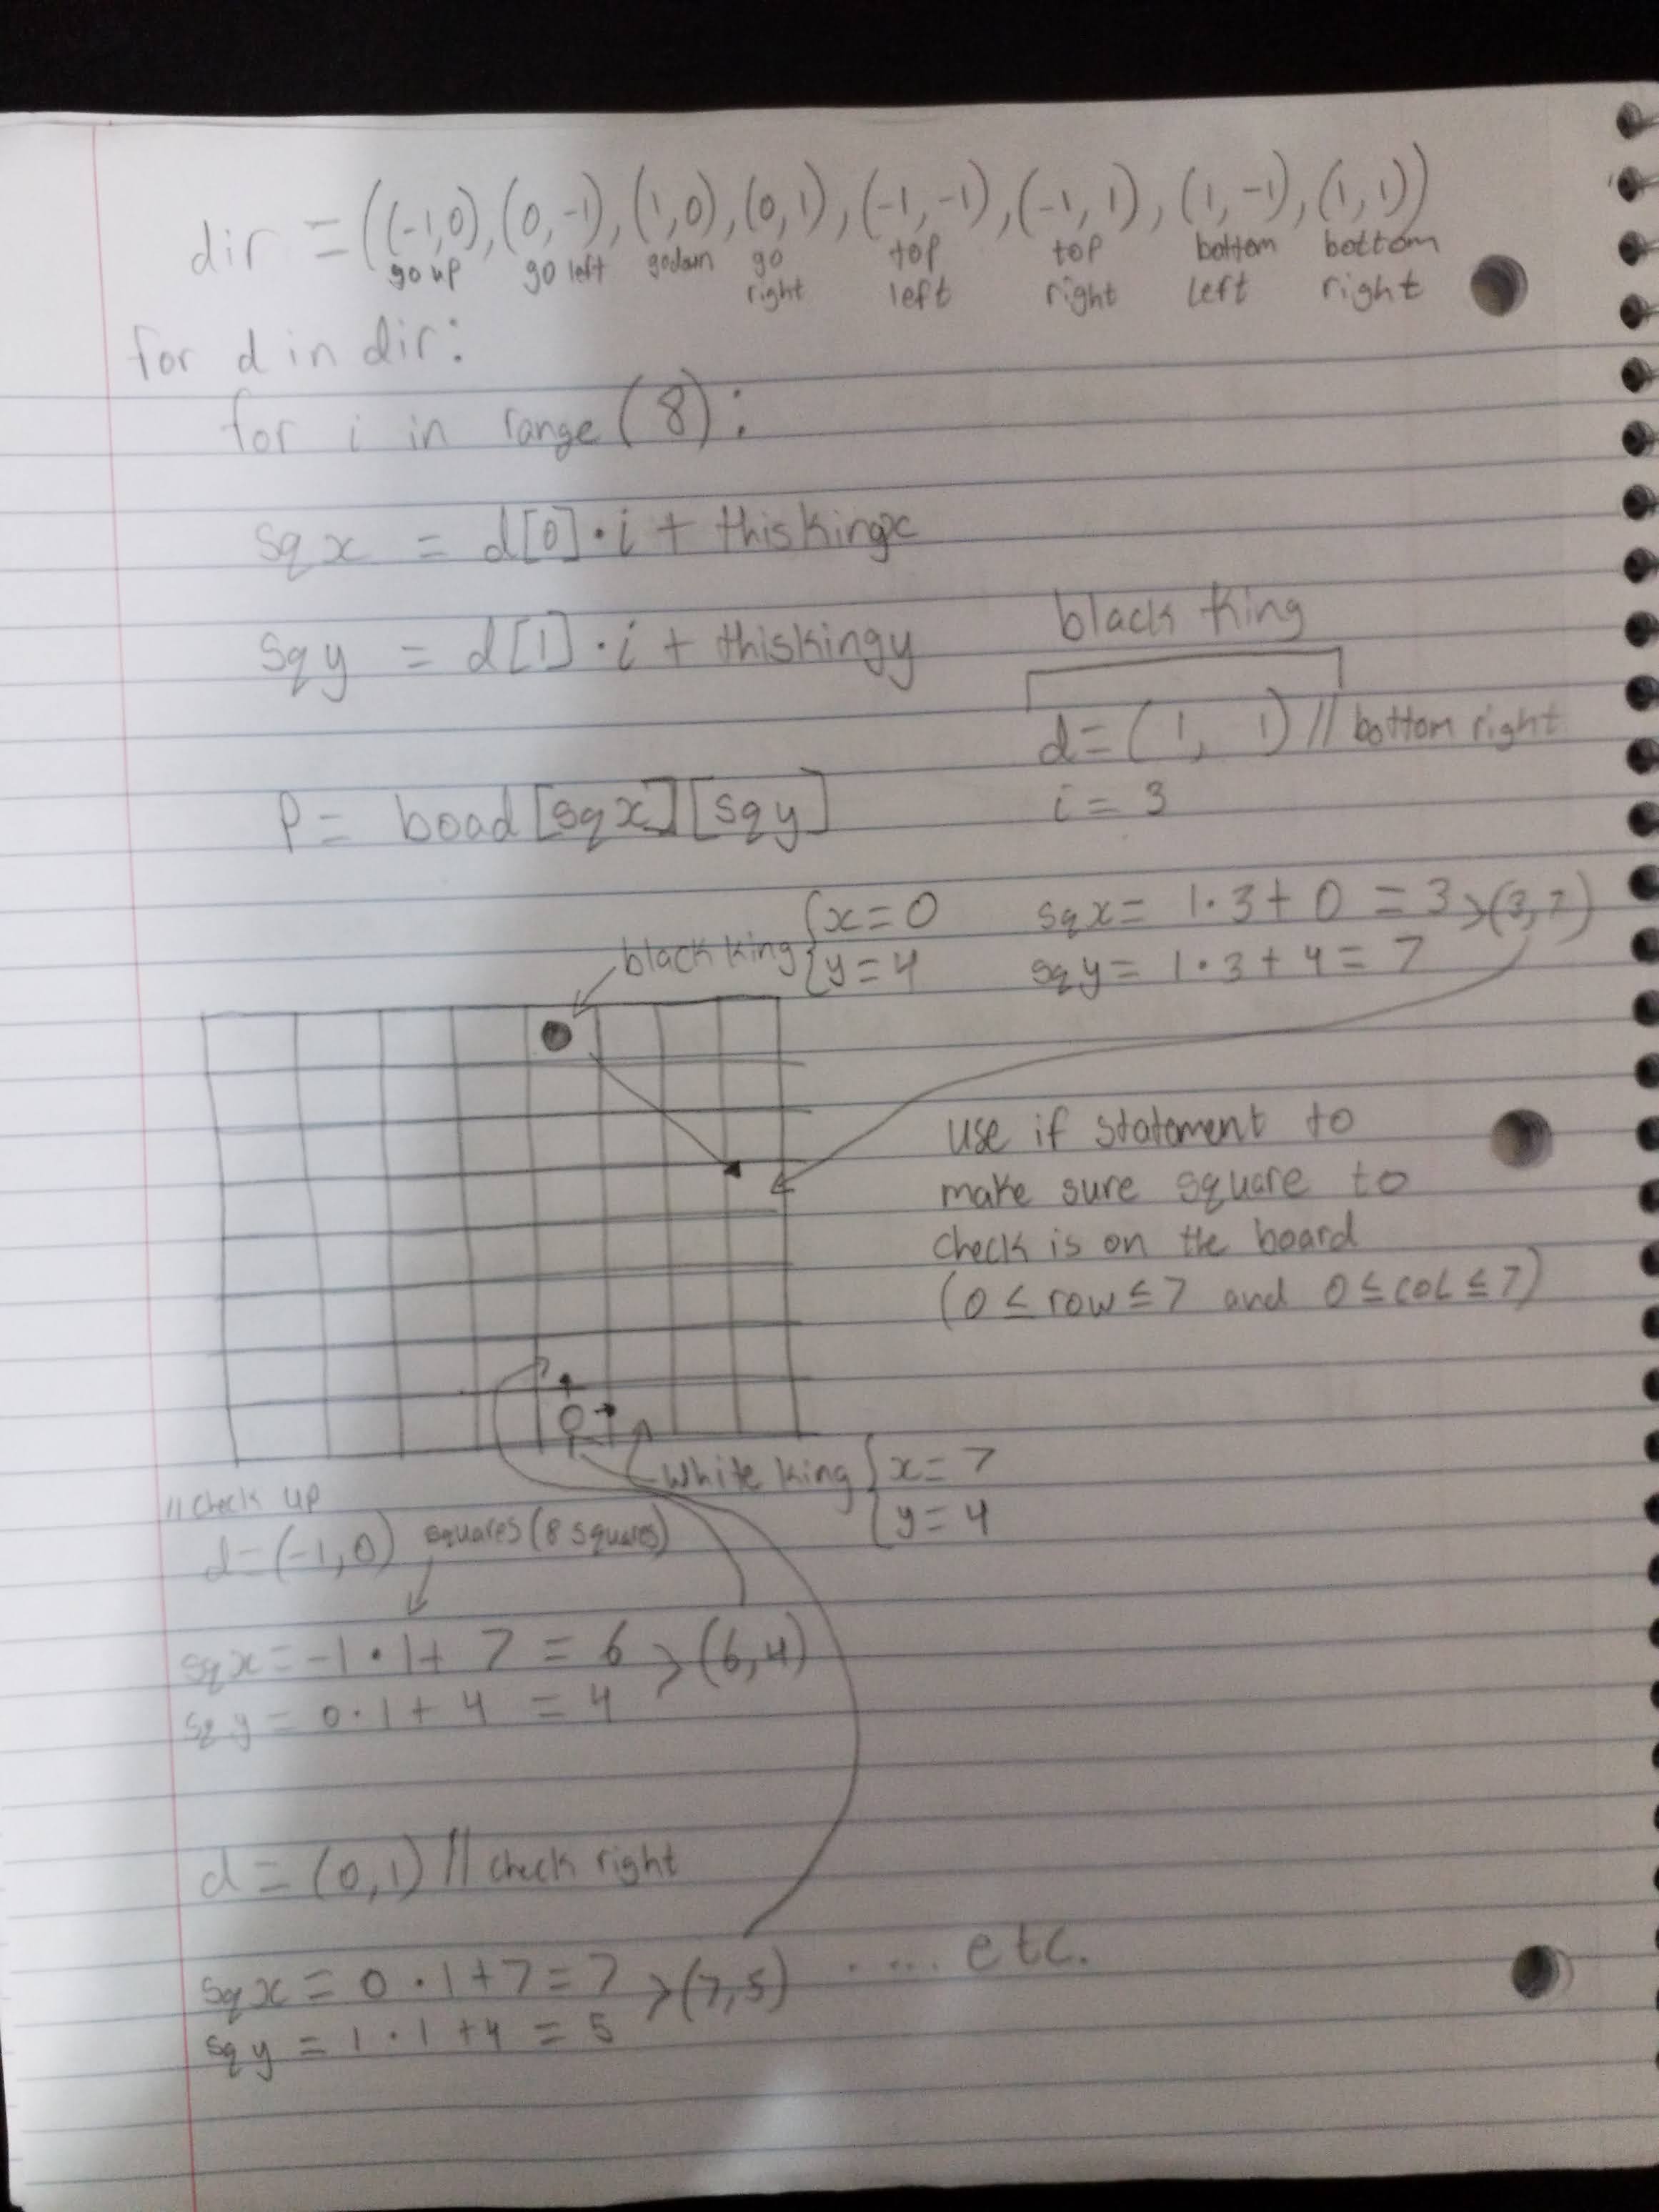 dir = ((-1,0), (0,-1), (1,0), (0,1), (-1,-1), (-1,1), (1,-1), (1,1))
go up go left go down go right top left top right bottom left bottom right
for d in dir:
for i in range (8):
sqx = d[0]·i + thiskingx
sqy = d[1]·i + thiskingy
black king
d = (1, 1) // bottom right
i = 3
P = boad [sqx][sqy]
black king { x=0
y=4
sqx = 1·3+ 0 = 3 > (3,7)
sqy = 1·3+4 = 7
use if statement to
make sure square to
check is on the board
(0 ≤ row ≤ 7 and 0 ≤ col ≤ 7)
white king { x=7
y=4
// check up
d=(-1,0) squares (8 squares)
sqx = -1·1+ 7 = 6 > (6,4)
sqy = 0·1+ 4 = 4
d = (0,1) // check right
sqx = 0·1+7=7 > (7,5) ..... etc.
sqy = 1·1+4 = 5